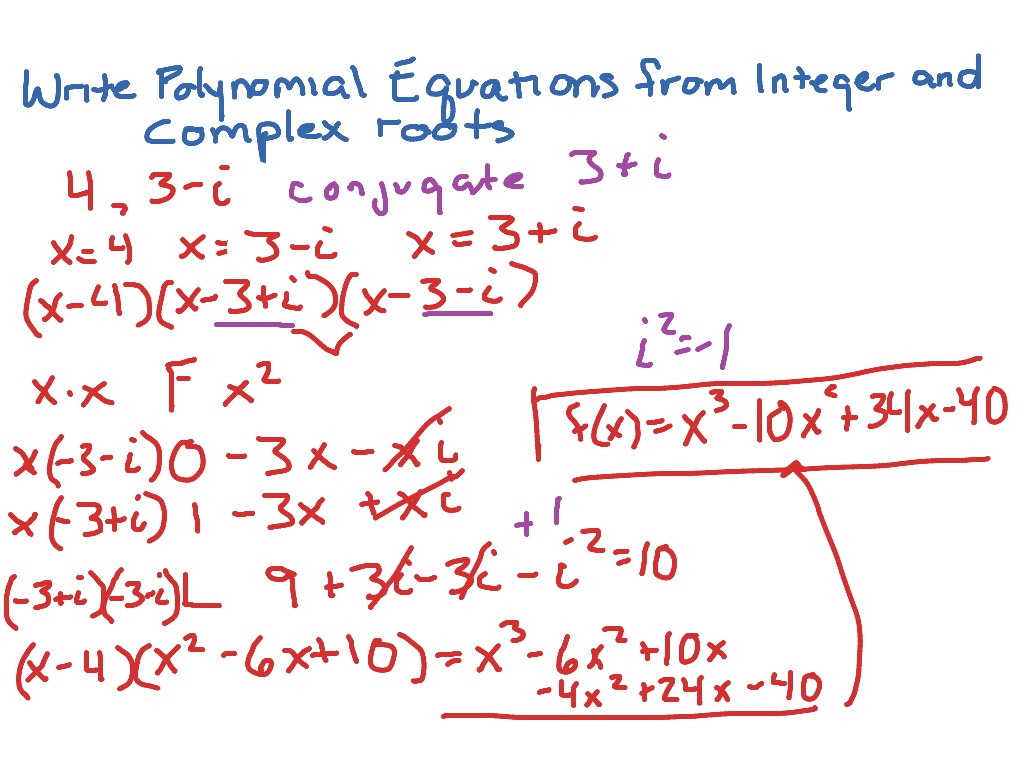 Write Polynomial Equations from Integer and
Complex roots
4, 3-i conjugate 3+i
x=4 x=3-i x=3+i
(x-4)(x-3+i)(x-3-i)
i²=-1
x·x F x²
f(x)=x³-10x²+34x-40
x(-3-i) O -3x -xi
x(-3+i) I -3x +xi
+1
(-3+i)(-3-i) L 9+3i-3i-i²=10
(x-4)(x²-6x+10)=x³-6x²+10x
-4x²+24x-40